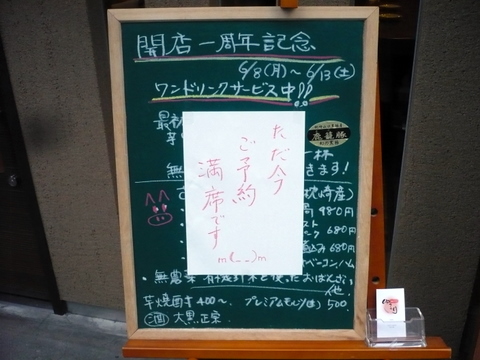 開店一周年記念
6/8(月)〜6/13(土)
ワンドリンクサービス中!!
最初
芋
一杯
無 きます!
ただ今
ご予約
満席です
m(_ _)m
鹿籠豚
(枕崎産)
980円
スト
680円
込み 680円
ベーコン/ハム
・無農薬 を使ったおばんざい
他
芋焼酎 400〜、プレミアムモルツ(生) 500.
酒 大黒正宗